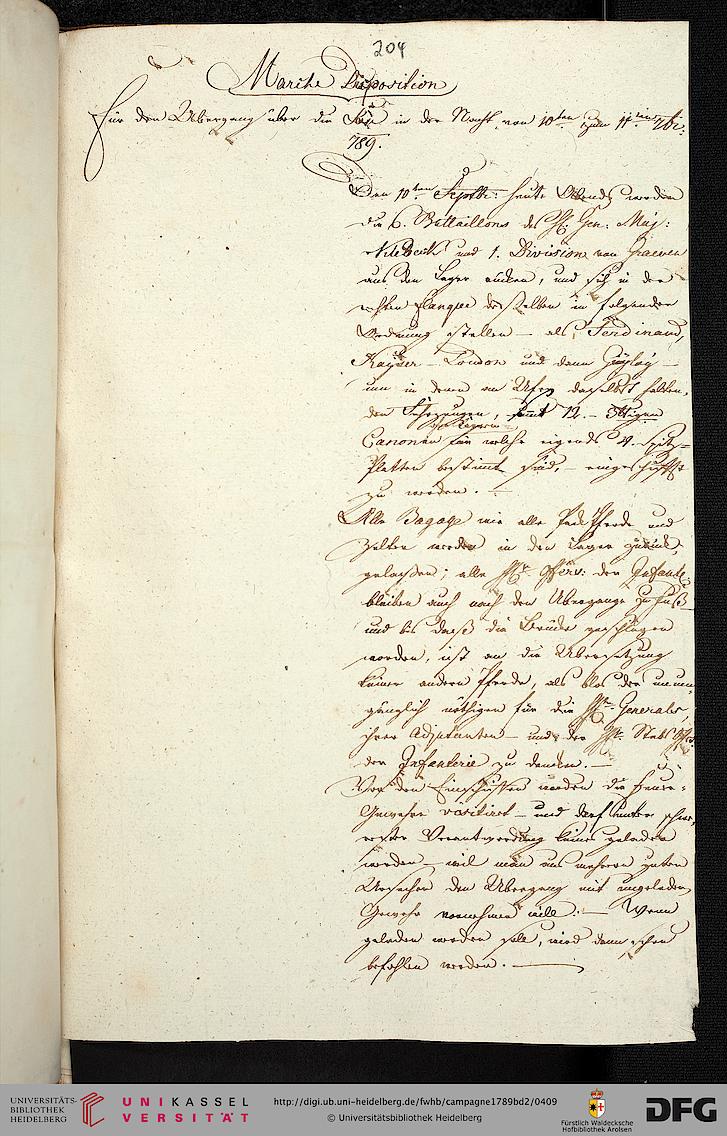 204
Marche Disposition
für den Übergang über die Save in der Nacht von 10ten zum 11ten 7br:
789.
Den 10ten Septbr: heute Abends werden
die 6. Battaillons des H: Gen: Maj:
und 1. Division von Graeven
aus dem Lager rücken, und sich in der
rechten Flanque desselben in folgender
Ordnung stellen – als, Ferdinand,
Kayser – Loudon und dann Gyulay –
um in denen am Ufer daselbst haltenden
Fahrzeugen, sammt 12. –
Canonen für welche eigends 4.
Platten bestimmt sind, – eingeschifft
zu werden. –
Alle Bagage wie alle Pack Pferde und
Zelter werden in den Lager zurück
gelassen; alle H: Offers: der Infanterie
bleiben auch nach dem Übergange zu Fuß
und bis daß die Brücke geschlagen
worden, ist an die Übersetzung
keiner andern Pferde, als blos der unum¬
gänglich nöthigen für die H: Generals,
ihrer Adjutanten – und der H: Stabs
der Infanterie zu denken. –
Vor dem Einschiffen werden die Feuer¬
Gewehre visitiret – und darf unter schwe¬
rester Verantwortung keines geladen
werden – weil man aus mehreren guten
Ursachen den Übergang mit ungeladenen
Gewehr vornehmen will. – Wenn
geladen werden soll, wird dann schon
befohlen werden. –
UNIVERSITÄTS-
BIBLIOTHEK
HEIDELBERG
UNIKASSEL
VERSITÄT
http://digi.ub.uni-heidelberg.de/fwhb/campagne1789bd2/0409
© Universitätsbibliothek Heidelberg
Fürstlich Waldecksche
Hofbibliothek Arolsen
DFG